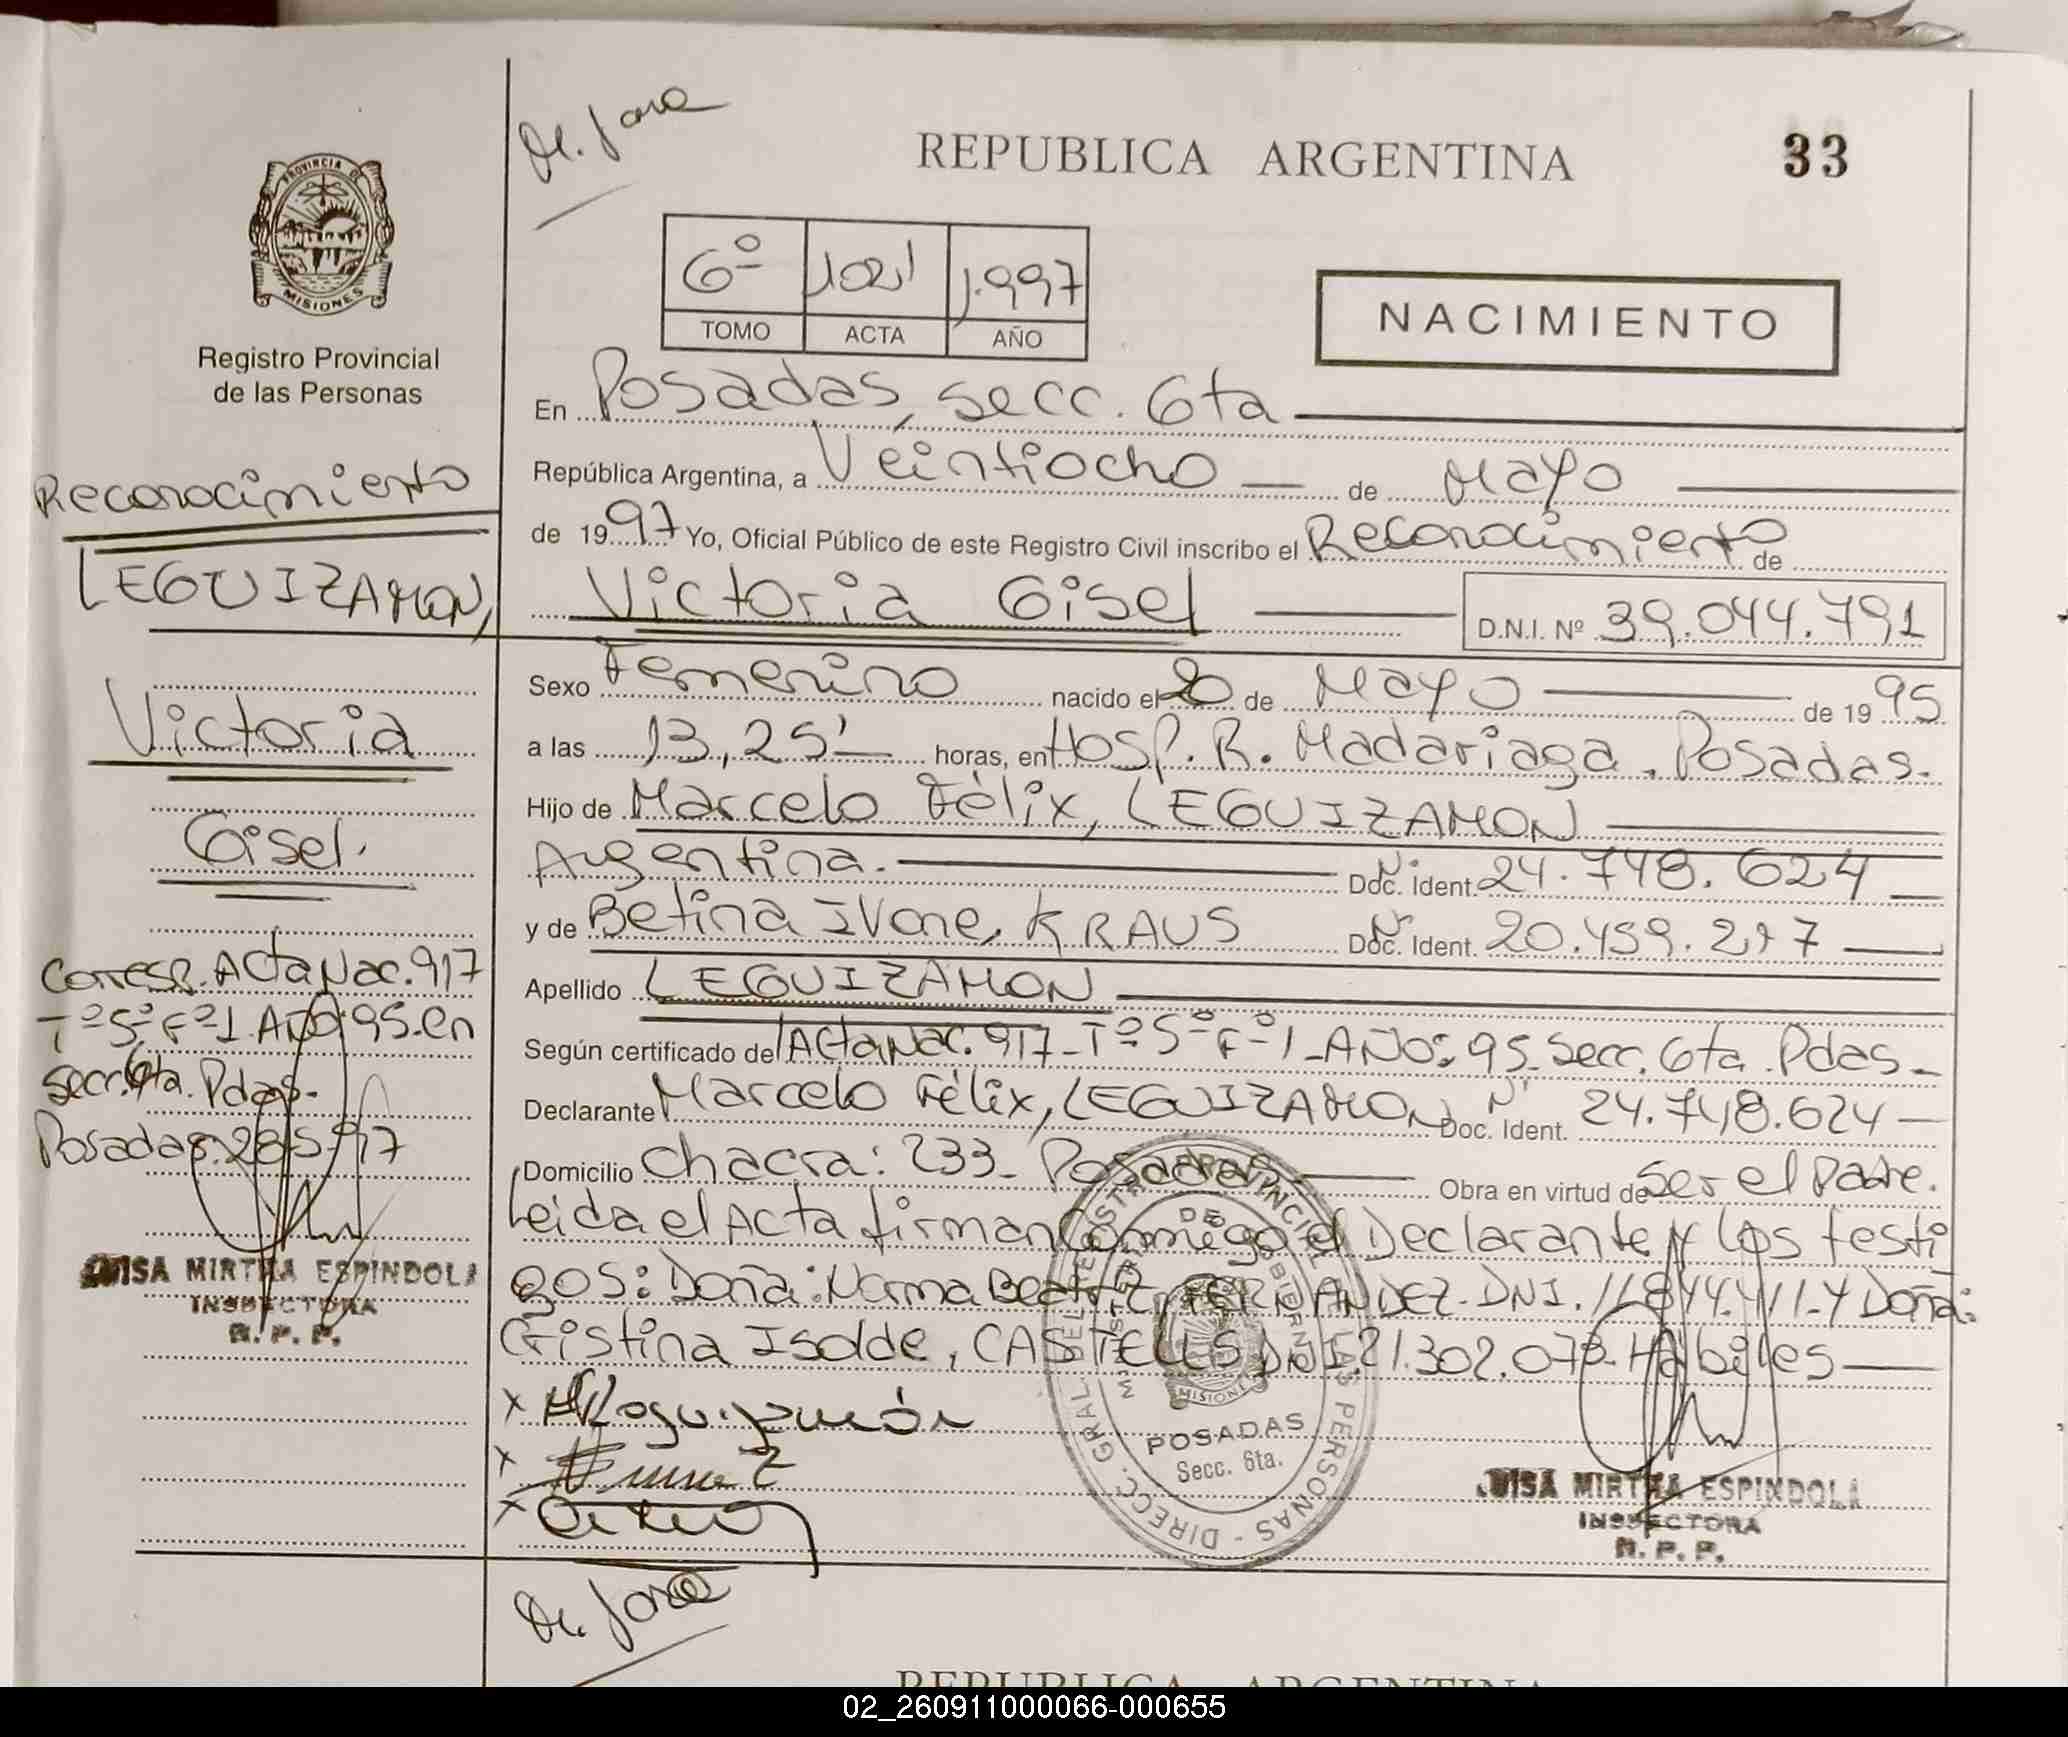 REPUBLICA ARGENTINA
33
PROVINCIA DE
MISIONES
Registro Provincial
de las Personas
6º 1021 1.997
TOMO ACTA AÑO
NACIMIENTO
En Posadas, secc. 6ta
República Argentina, a Veintiocho de Mayo
de 1997 Yo, Oficial Público de este Registro Civil inscribo el Reconocimiento de
Victoria Gisel D.N.I. Nº 39.044.791
Sexo Femenino nacido el 20 de Mayo de 1995
a las 13,25' horas, en Hosp. R. Madariaga. Posadas.
Hijo de Marcelo Félix, LEGUIZAMON
Argentina. Doc. Ident. 24.748.624
y de Betina Ivone, KRAUS Doc. Ident. 20.459.217
Apellido LEGUIZAMON
Según certificado de Acta Nac. 917- Tº 5º Fº 1- AÑO: 95. Secc. 6ta. Pdas-
Declarante Marcelo Félix, LEGUIZAMON Doc. Ident. 24.748.624
Domicilio Chacra: 233- Posadas Obra en virtud de ser el Padre.
Leida el Acta firman conmigo el Declarante y los testi
gos: Doña: Norma Beatriz, FERNANDEZ- DNI. 11.844.411- Y Doña:
Cristina Isolde, CASTELLS DNI. 21.302.073- Hábiles
Reconocimiento
LEGUIZAMON,
Victoria
Gisel.
Corresp. Acta Nac. 917
Tº 5º Fº 1. AÑO: 95. en
secc. 6ta. Pdas.
Posadas: 28-5-97
LUISA MIRTHA ESPINDOLA
INSPECTORA
R. P. P.
DIRECC. GRAL. DEL REGISTRO PROVINCIAL DE LAS PERSONAS
MISIONES
POSADAS
Secc. 6ta.
LUISA MIRTHA ESPINDOLA
INSPECTORA
R. P. P.
REPUBLICA ARGENTINA
02_260911000066-000655